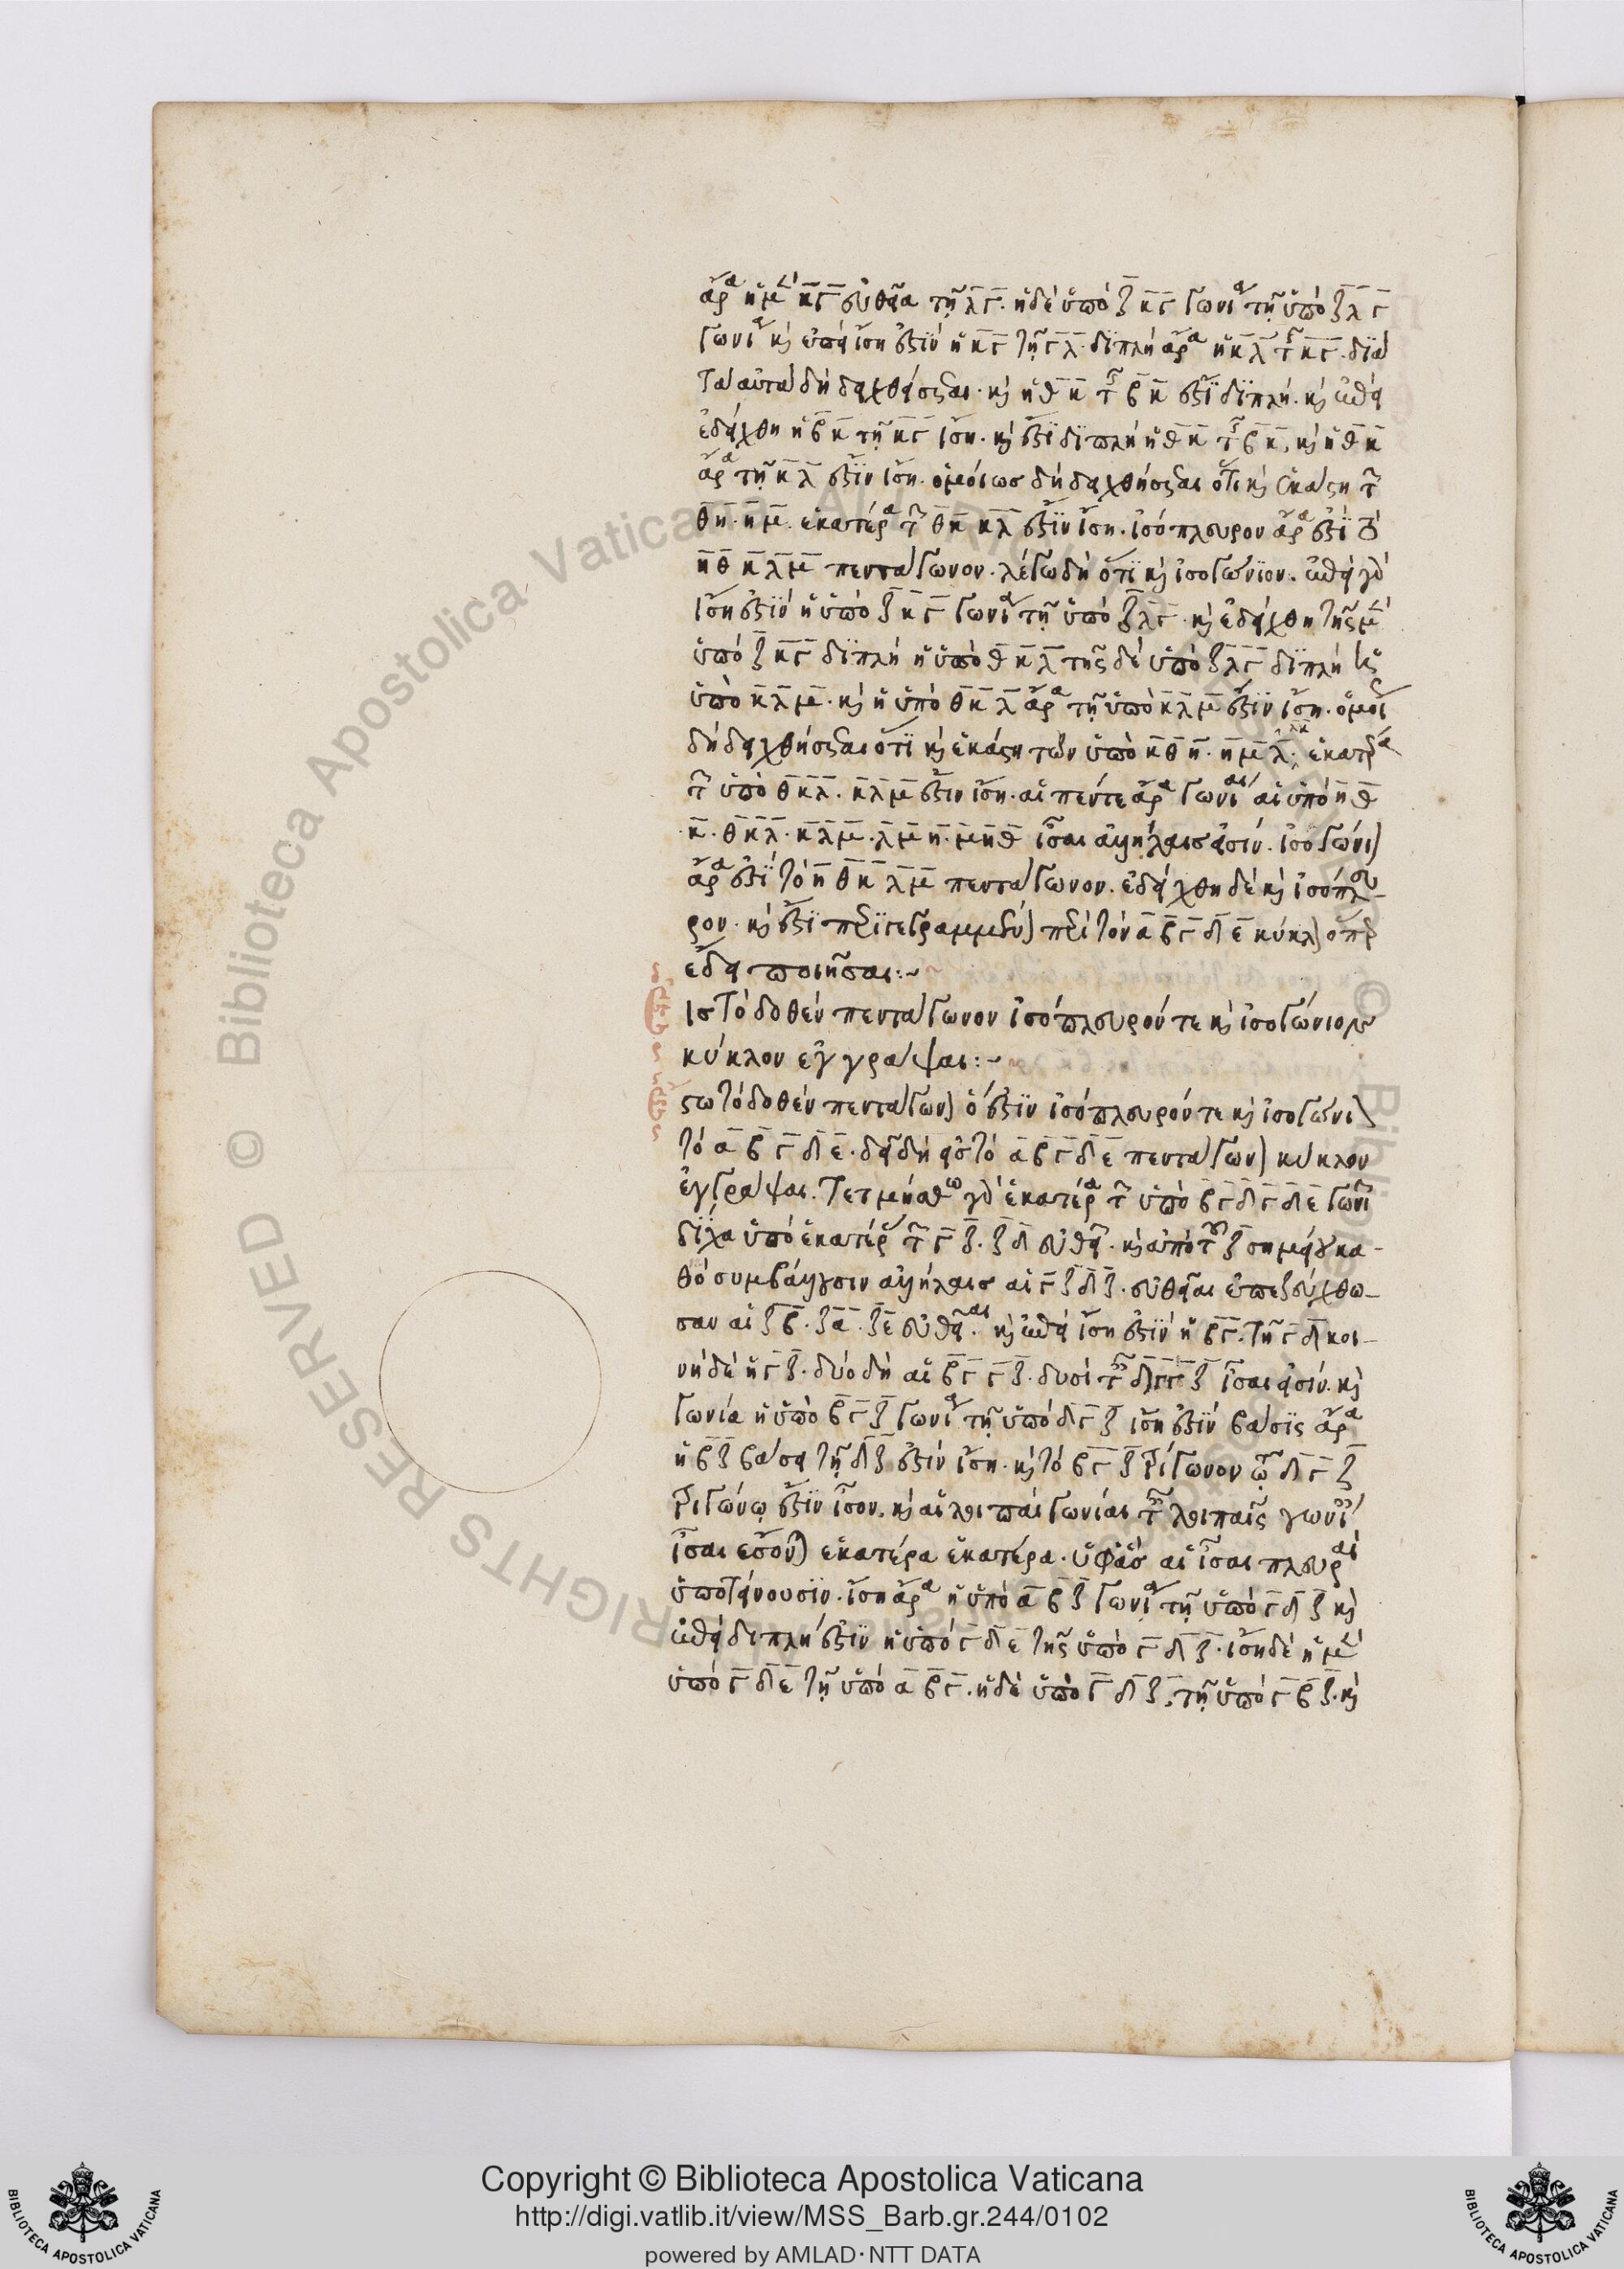 ἄρα ἡ μὲν κγ εὐθεῖα τῇ λγ. ἡ δὲ ὑπὸ ζκγ γωνία τῇ ὑπὸ ζλγ
γωνίᾳ καὶ ἐπεὶ ἴση ἐστὶν ἡ κγ τῇ γλ διπλῆ ἄρα ἡ κλ τῆς κγ. διὰ
τὰ αὐτὰ δὴ δειχθήσεται καὶ ἡ θκ τῆς βκ ἐστὶ διπλῆ. καὶ ἐπεὶ
ἐδείχθη ἡ βκ τῇ κγ ἴση. καὶ ἐστὶ διπλῆ ἡ θκ τῆς βκ, καὶ ἡ θκ
ἄρα τῇ κλ ἐστὶν ἴση. ὁμοίως δὴ δειχθήσεται ὅτι καὶ ἑκάστη τῶν
θη. ημ. ἑκατέρᾳ τῶν θκ κλ ἐστὶν ἴση. ἰσόπλευρον ἄρα ἐστὶ τὸ
ηθκλμ πεντάγωνον. λέγω δὴ ὅτι καὶ ἰσογώνιον. ἐπεὶ γὰρ
ἴση ἐστὶν ἡ ὑπὸ ζκγ γωνία τῇ ὑπὸ ζλγ. καὶ ἐδείχθη τῆς μὲν
ὑπὸ ζκγ διπλῆ ἡ ὑπὸ θκλ τῆς δὲ ὑπὸ ζλγ διπλῆ ἡ
ὑπὸ κλμ. καὶ ἡ ὑπὸ θκλ ἄρα τῇ ὑπὸ κλμ ἐστὶν ἴση. ὁμοίως
δὴ δειχθήσεται ὅτι καὶ ἑκάστη τῶν ὑπὸ κθη. ημλ. ἑκατέρᾳ
τῶν ὑπὸ θκλ. κλμ ἐστὶν ἴση. αἱ πέντε ἄρα γωνίαι αἱ ὑπὸ ηθ
κ. θκλ. κλμ. λμη. μηθ ἴσαι ἀλλήλαις εἰσίν. ἰσογώνιον
ἄρα ἐστὶ τὸ ηθκλμ πεντάγωνον. ἐδείχθη δὲ καὶ ἰσόπλευ-
ρον. καὶ ἐστὶ περιγεγραμμένον περὶ τὸν αβγδε κύκλον ὅπερ
ἔδει ποιῆσαι:~
ις Τὸ δοθὲν πεντάγωνον ἰσόπλευρόν τε καὶ ἰσογώνιον
κύκλον ἐγγράψαι:~
ςω τὸ δοθὲν πεντάγωνον ὅ ἐστιν ἰσόπλευρόν τε καὶ ἰσογώνιον
τὸ αβγδε. δεῖ δὴ εἰς τὸ αβγδε πεντάγωνον κύκλον
ἐγγράψαι. Τετμήσθω γὰρ ἑκατέρα τῶν ὑπὸ βγδ γδε γωνιῶν
δίχα ὑπὸ ἑκατέρας τῶν γζ. ζδ εὐθειῶν. καὶ ἀπὸ τοῦ ζ σημείου κα-
θὸ συμβάλλουσιν ἀλλήλαις αἱ γζ δζ. εὐθεῖαι ἐπεζεύχθω-
σαν αἱ ζβ. ζα. ζε εὐθεῖαι. καὶ ἐπεὶ ἴση ἐστὶν ἡ βγ. τῇ γδ κοι-
νὴ δὲ ἡ γζ. δύο δὴ αἱ βγ γζ. δυσὶ ταῖς δγ γζ ἴσαι εἰσίν. καὶ
γωνία ἡ ὑπὸ βγζ γωνίᾳ τῇ ὑπὸ δγζ ἴση ἐστίν βάσις ἄρα
ἡ βζ βάσει τῇ δζ ἐστὶν ἴση. καὶ τὸ βγζ τρίγωνον τῷ δγζ
τριγώνῳ ἐστὶν ἴσον. καὶ αἱ λοιπαὶ γωνίαι ταῖς λοιπαῖς γωνίαις
ἴσαι ἔσονται ἑκατέρα ἑκατέρα. ὑφ' ἃς αἱ ἴσαι πλευραὶ
ὑποτείνουσιν. ἴση ἄρα ἡ ὑπὸ αβζ γωνία τῇ ὑπὸ γδζ καὶ
ἐπεὶ διπλῆ ἐστὶν ἡ ὑπὸ γδε τῆς ὑπὸ γδζ. ἴση δὲ ἡ μὲν
ὑπὸ γδε τῇ ὑπὸ αβγ. ἡ δὲ ὑπὸ γδζ. τῇ ὑπὸ γβζ. καὶ
Copyright © Biblioteca Apostolica Vaticana
http://digi.vatlib.it/view/MSS_Barb.gr.244/0102
powered by AMLAD·NTT DATA
BIBLIOTECA APOSTOLICA VATICANA
BIBLIOTECA APOSTOLICA VATICANA